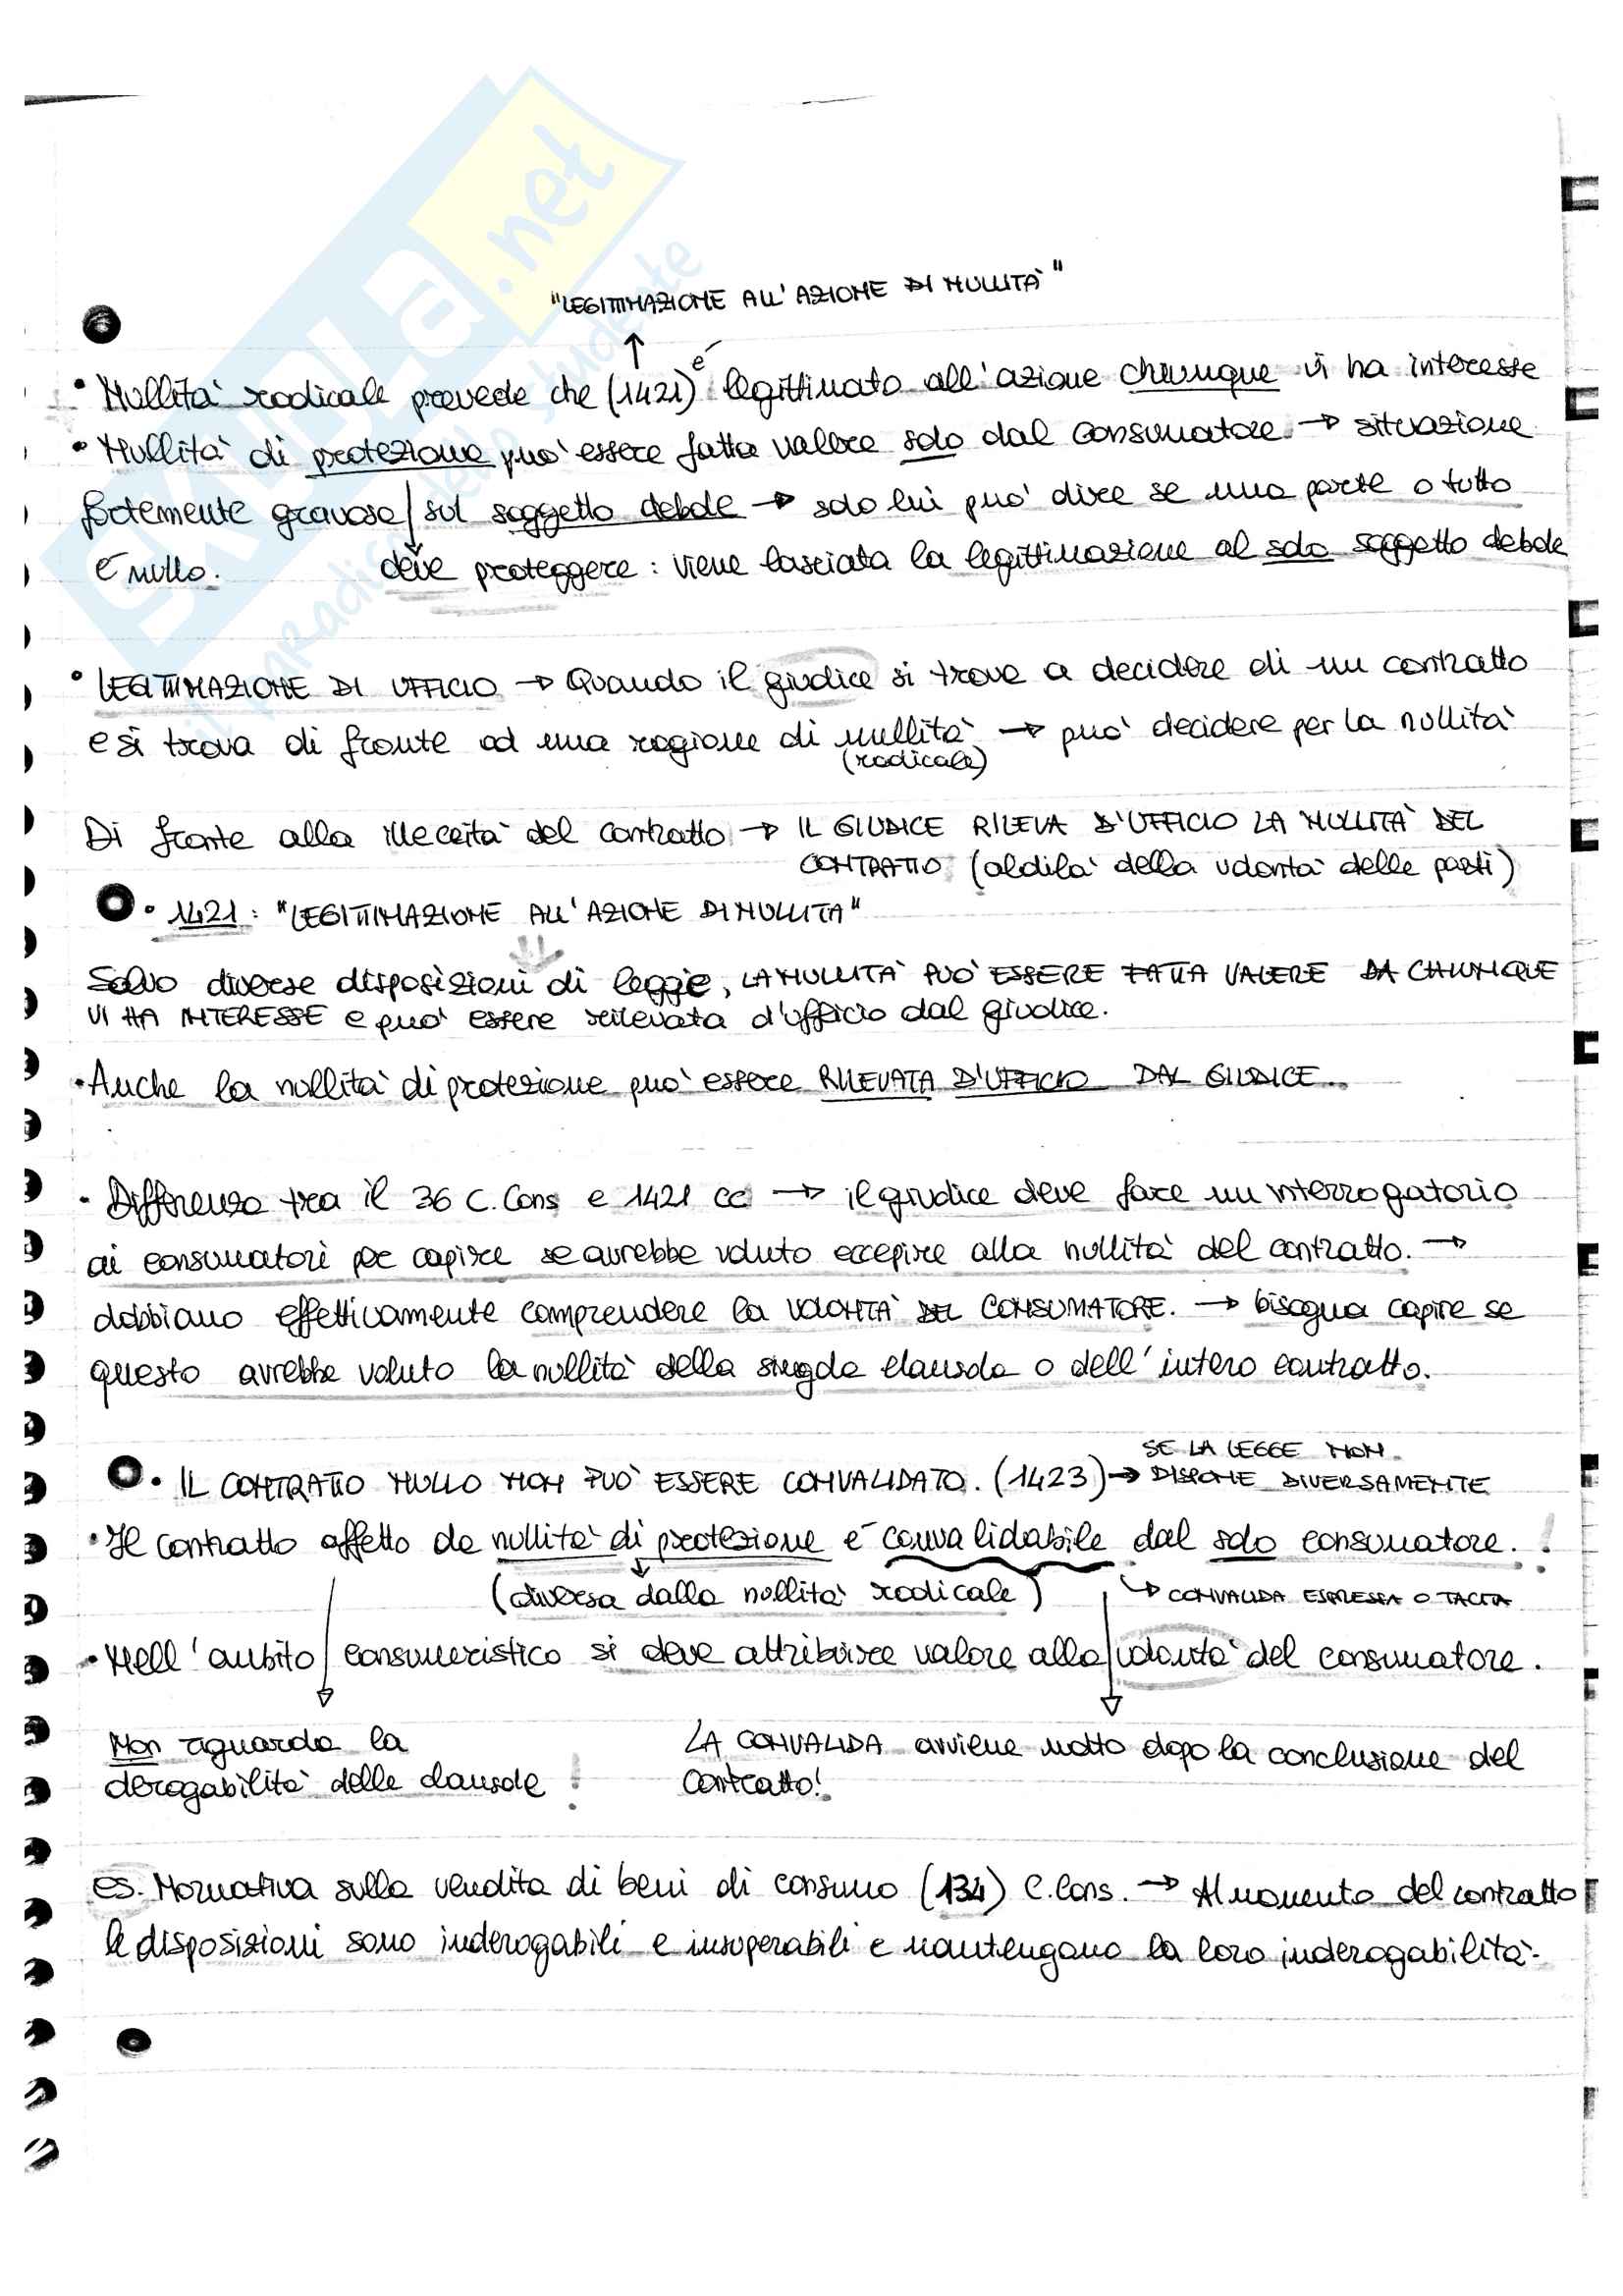 SKUOLA.net
il paradiso dello studente
"LEGITTIMAZIONE ALL'AZIONE DI NULLITÀ"
↑
• Nullità radicale prevede che (1421) è legittimato all'azione chiunque vi ha interesse
• Nullità di protezione può essere fatta valere solo dal consumatore → situazione
fortemente gravosa sul soggetto debole → solo lui può dire se una parte o tutto
è nullo. deve proteggere: viene lasciata la legittimazione al solo soggetto debole
• LEGITTIMAZIONE DI UFFICIO → Quando il giudice si trova a decidere di un contratto
e si trova di fronte ad una ragione di nullità → può decidere per la nullità
(radicale)
Di fronte alla illeceità del contratto → IL GIUDICE RILEVA D'UFFICIO LA NULLITÀ DEL
CONTRATTO (aldilà della volontà delle parti)
• 1421: "LEGITTIMAZIONE ALL'AZIONE DI NULLITA"
Salvo diverse disposizioni di legge, LA NULLITÀ PUÒ ESSERE FATTA VALERE DA CHIUNQUE
VI HA INTERESSE e può essere rilevata d'ufficio dal giudice.
• Anche la nullità di protezione può essere RILEVATA D'UFFICIO DAL GIUDICE.
• Differenza tra il 36 C. Cons e 1421 cc → il giudice deve fare un interrogatorio
ai consumatori per capire se avrebbe voluto eccepire alla nullità del contratto. →
dobbiamo effettivamente comprendere la VOLONTÀ DEL CONSUMATORE. → bisogna capire se
questo avrebbe voluto la nullità della singola clausola o dell'intero contratto.
SE LA LEGGE NON
• IL CONTRATTO NULLO NON PUÒ ESSERE CONVALIDATO. (1423) → DISPONE DIVERSAMENTE
• Il contratto affetto da nullità di protezione è convalidabile dal solo consumatore. !
(diversa dalla nullità radicale) ↳ CONVALIDA ESPRESSA O TACITA
• Nell'ambito consumeristico si deve attribuire valore alla volontà del consumatore.
Non riguarda la
derogabilità delle clausole !
LA CONVALIDA avviene molto dopo la conclusione del
Contratto!
es. Normativa sulla vendita di beni di consumo (134) C. Cons. → Al momento del contratto
le disposizioni sono inderogabili e insuperabili e mantengano la loro inderogabilità.